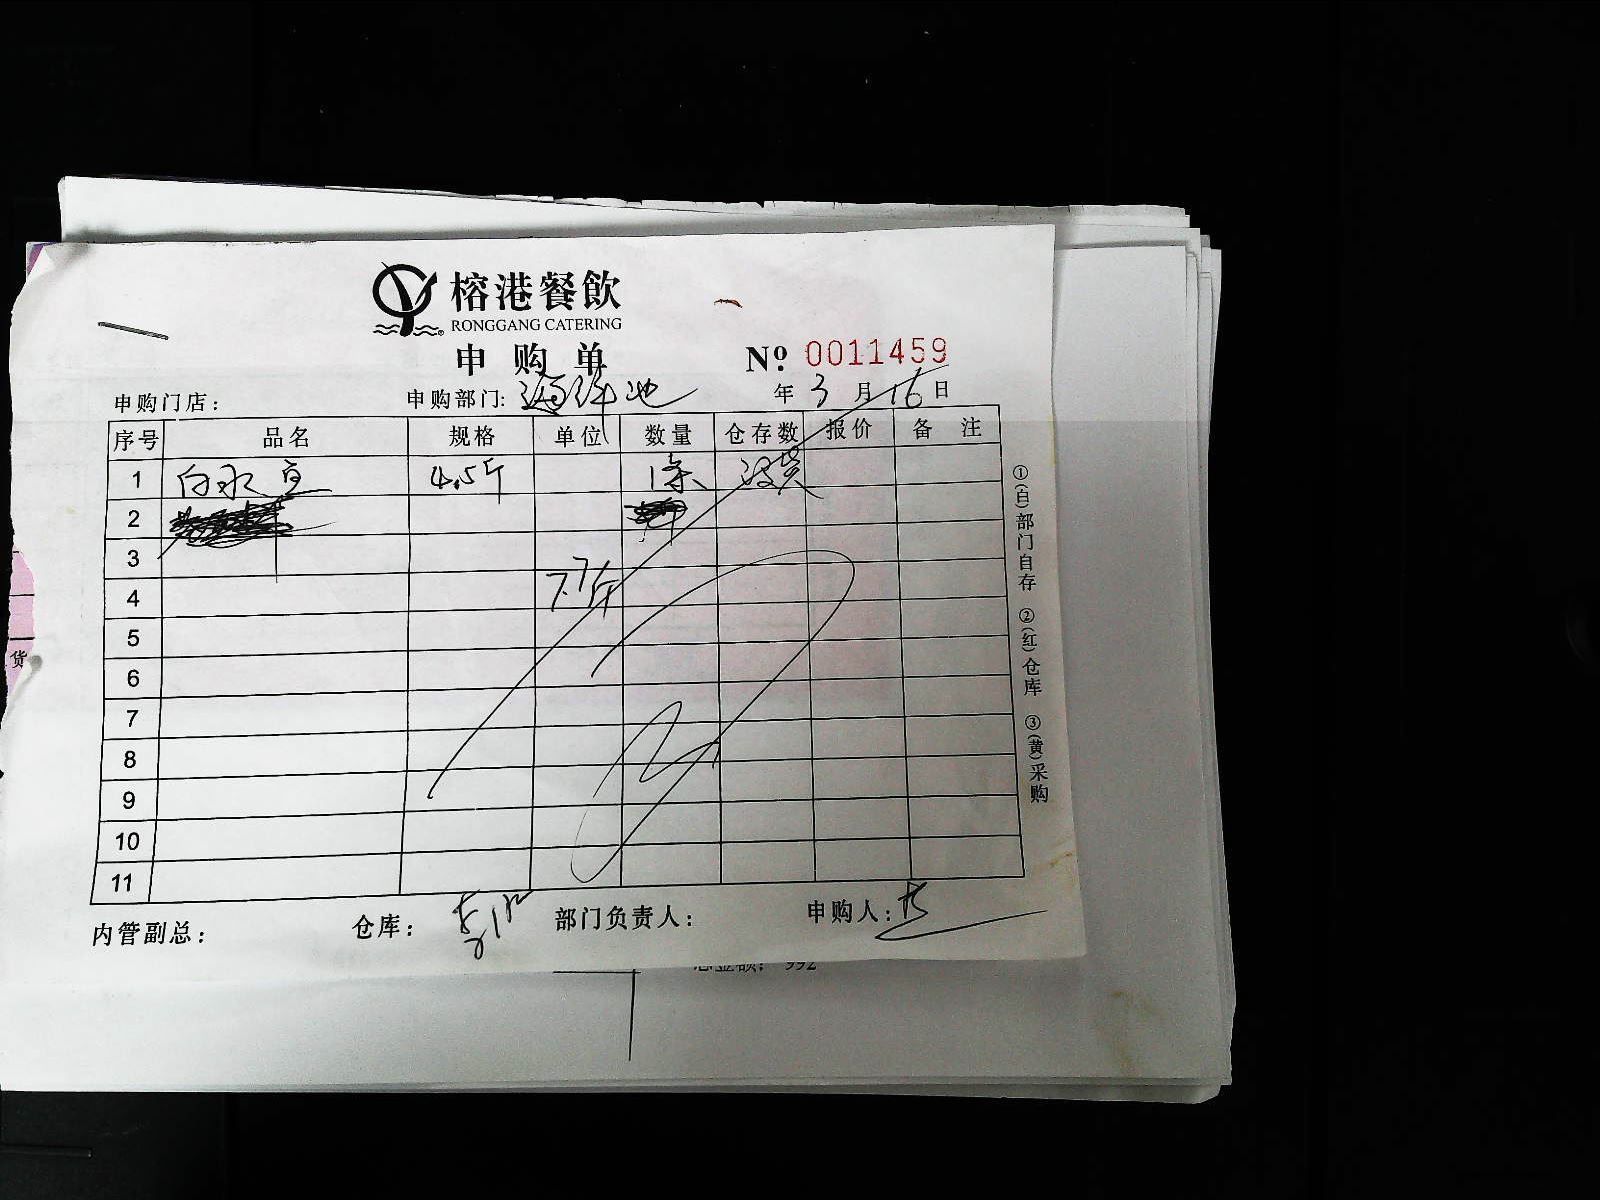 榕港餐飲
RONGGANG CATERING
申购单 Nº 0011459
申购门店： 申购部门: 海鲜池 年 3 月 16 日
序号 品名 规格 单位 数量 仓存数 报价 备 注
1 4.5斤 1条 没货
2
3
4 7.7斤
5
6
7
8
9
10
11
内管副总： 仓库： 部门负责人： 申购人：
①(白)部门自存 ②(红)仓库 ③(黄)采购
货
总金额： 992